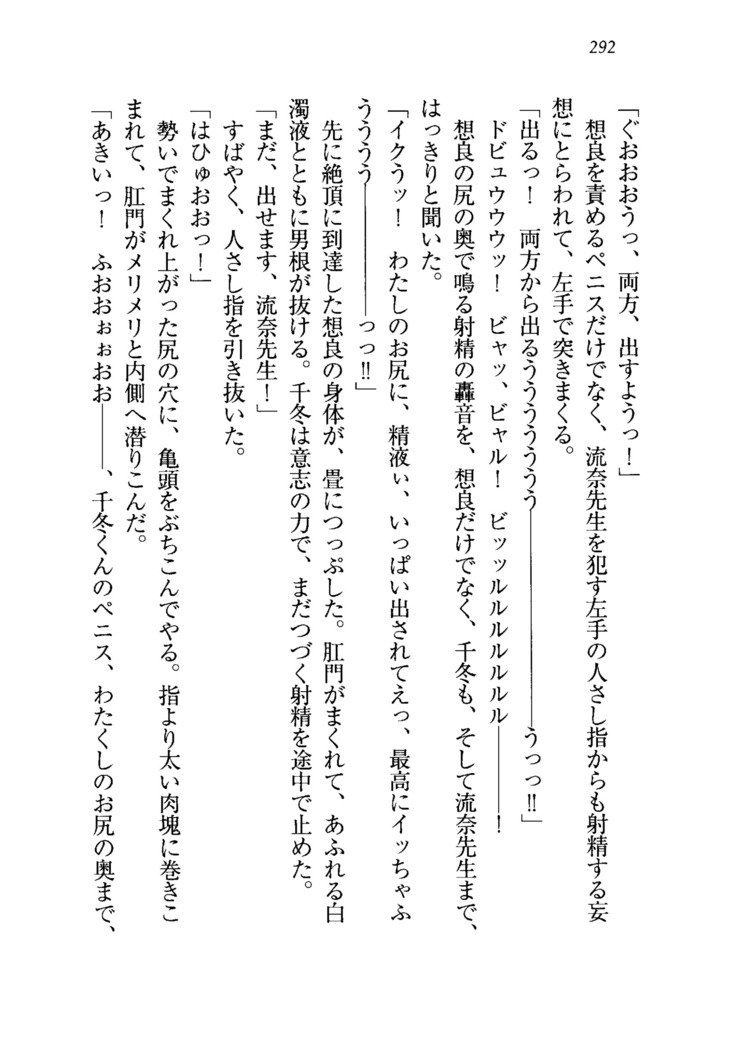 292
「ぐおおおうっ、両方、出すようっ！」
想良を責めるペニスだけでなく、流奈先生を犯す左手の人さし指からも射精する妄
想にとらわれて、左手で突きまくる。
「出るっ！　両方から出るうううううう――――――――うっっ‼」
ドビュウウウッ！　ビャッ、ビャル！　ビッッルルルルルルル――――！
想良の尻の奥で鳴る射精の轟音を、想良だけでなく、千冬も、そして流奈先生まで、
はっきりと聞いた。
「イクうッ！　わたしのお尻に、精液ぃ、いっぱい出されてえっ、最高にイッちゃふ
うううう――――――っっ‼」
先に絶頂に到達した想良の身体が、畳につっぷした。肛門がまくれて、あふれる白
濁液とともに男根が抜ける。千冬は意志の力で、まだつづく射精を途中で止めた。
「まだ、出せます、流奈先生！」
すばやく、人さし指を引き抜いた。
「はひゅおおっ！」
勢いでまくれ上がった尻の穴に、亀頭をぶちこんでやる。指より太い肉塊に巻きこ
まれて、肛門がメリメリと内側へ潜りこんだ。
「あきいっ！　ふおおぉぉおお――、千冬くんのペニス、わたくしのお尻の奥まで、